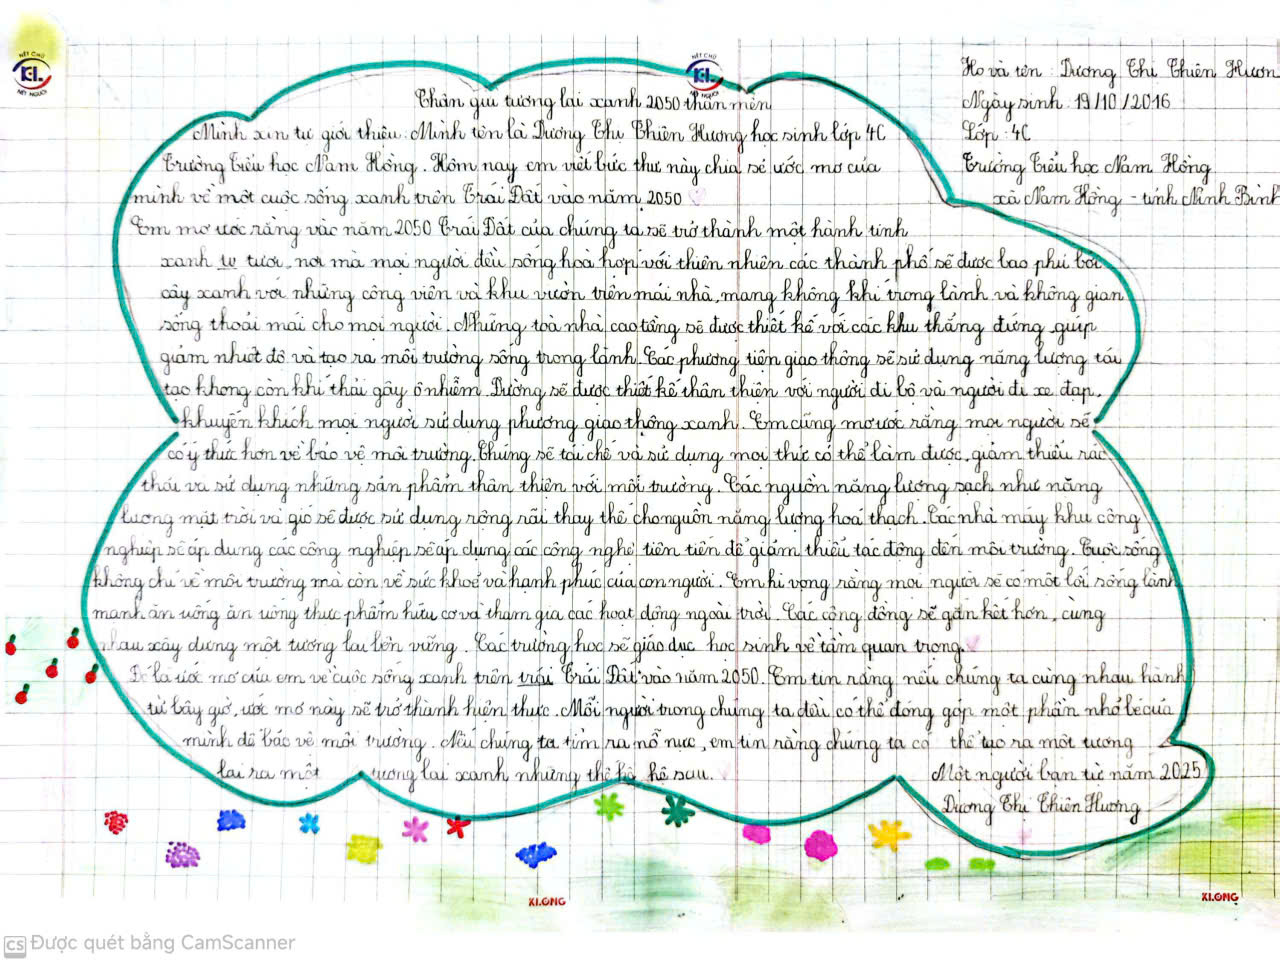 Họ và tên : Dương Thị Thiên Hươn
Ngày sinh : 19/10/2016
Lớp : 4C
Trường Tiểu học Nam Hồng
xã Nam Hồng - tỉnh Ninh Bình
NÉT CHỮ
KL
NẾT NGƯỜI
NÉT CHỮ
KL
NẾT NGƯỜI
Thân gửi tương lai xanh 2050 thân mến
Mình xin tự giới thiệu : Mình tên là Dương Thị Thiên Hương học sinh lớp 4C
Trường Tiểu học Nam Hồng . Hôm nay em viết bức thư này chia sẻ ước mơ của
mình về một cuộc sống xanh trên Trái Đất vào năm 2050
Em mơ ước rằng vào năm 2050 Trái Đất của chúng ta sẽ trở thành một hành tinh
xanh tư tươi, nơi mà mọi người đều sống hoà hợp với thiên nhiên các thành phố sẽ được bao phủ bởi
cây xanh với những công viên và khu vườn trên mái nhà, mang không khí trong lành và không gian
sống thoải mái cho mọi người . Những toà nhà cao tầng sẽ được thiết kế với các khu thẳng đứng , giúp
giảm nhiệt độ và tạo ra môi trường sống trong lành. Các phương tiện giao thông sẽ sử dụng năng lượng tái
tạo không còn khí thải gây ô nhiễm. Đường sẽ được thiết kế thân thiện với người đi bộ và người đi xe đạp,
khuyến khích mọi người sử dụng phương giao thông xanh. Em cũng mơ ước rằng mọi người sẽ
có ý thức hơn về bảo vệ môi trường. Chúng sẽ tái chế và sử dụng mọi thứ có thể làm được, giảm thiểu rác
thải và sử dụng những sản phẩm thân thiện với môi trường. Các nguồn năng lượng sạch như năng
lượng mặt trời và gió sẽ được sử dụng rộng rãi thay thế cho nguồn năng lượng hoá thạch. Các nhà máy khu công
nghiệp sẽ áp dụng các công nghiệp sẽ áp dụng các công nghệ tiên tiến để giảm thiểu tác động đến môi trường. Cuộc sống
không chỉ về môi trường mà còn về sức khoẻ và hạnh phúc của con người. Em hi vọng rằng mọi người sẽ có một lối sống lành
mạnh ăn uống ăn uống thực phẩm hữu cơ và tham gia các hoạt động ngoài trời. Các cộng đồng sẽ gắn kết hơn, cùng
nhau xây dựng một tương lai bền vững . Các trường học sẽ giáo dục học sinh về tầm quan trọng.
Đó là ước mơ của em về cuộc sống xanh trên trái Trái Đất vào năm 2050. Em tin rằng nếu chúng ta cùng nhau hành
từ bây giờ, ước mơ này sẽ trở thành hiện thực. Mỗi người trong chúng ta đều có thể đóng góp một phần nhỏ bé của
mình để bảo vệ môi trường . Nếu chúng ta tìm ra nỗ nực, em tin rằng chúng ta có thể tạo ra một tương
lai ra một tương lai xanh những thế hệ hệ sau.
Một người bạn từ năm 2025
Dương Thị Thiên Hương
KLONG
KLONG
CS Được quét bằng CamScanner